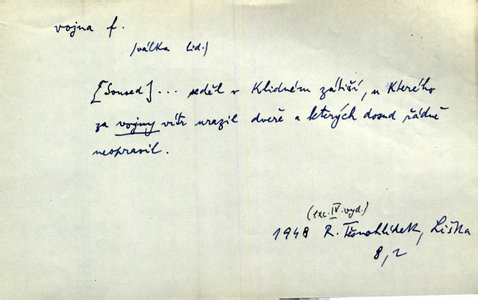 vojna f.
/válka lid./
[Soused]... seděl v Klidném zátiší, u kterého
za vojny vítr urazil dveře a kterých dosud řádně
neopravil.
(exc. IV. vyd.)
1948 R. Těsnohlídek, Liška
8,2